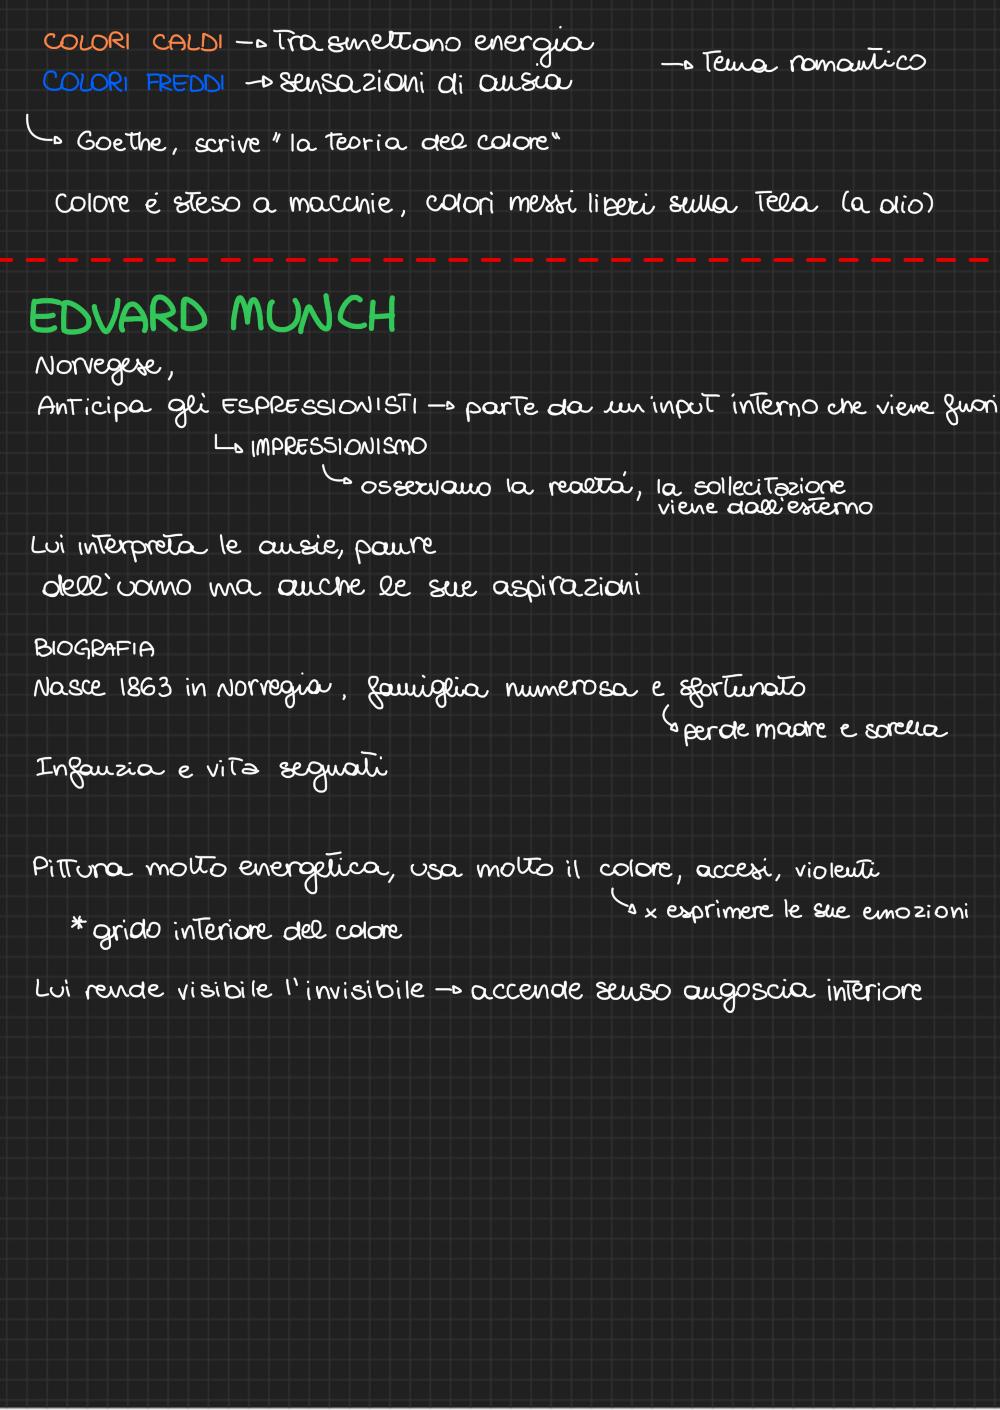 COLORI CALDI → Trasmettono energia
→ Tema romantico
COLORI FREDDI → sensazioni di ansia
↳ Goethe, scrive "la teoria del colore"
Colore é steso a macchie, colori messi liberi sulla Tela (a olio)
EDVARD MUNCH
Norvegese,
Anticipa gli ESPRESSIONISTI → parte da un input interno che viene fuori
↳ IMPRESSIONISMO
↳ osservano la realtá, la sollecitazione
viene dall'esterno
Lui interpreta le ansie, paure
dell'uomo ma anche le sue aspirazioni
BIOGRAFIA
Nasce 1863 in Norvegia, famiglia numerosa e sfortunato
↳ perde madre e sorella
Infanzia e vita segnati
Pittura molto energetica, usa molto il colore, accesi, violenti
↳ x esprimere le sue emozioni
* grido interiore del colore
Lui rende visibile l'invisibile → accende senso angoscia interiore